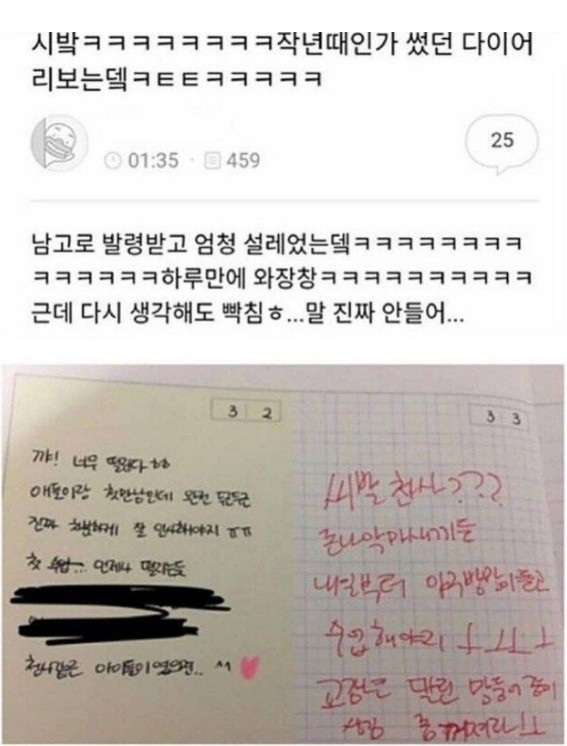 시밬ㅋㅋㅋㅋㅋㅋㅋㅋㅋ작년때인가 썼던 다이어
리보는뎈ㅋㅌㅌㅋㅋㅋㅋㅋ
01:35 · 459
25
남고로 발령받고 엄청 설레었는뎈ㅋㅋㅋㅋㅋㅋㅋㅋ
ㅋㅋㅋㅋㅋㅋ하루만에 와장창ㅋㅋㅋㅋㅋㅋㅋㅋㅋㅋ
근데 다시 생각해도 빡침ㅎ...말 진짜 안들어...
3 2
꺄! 너무 떨린다 ㅎㅎ
애들이랑 첫만남인데 완전 두근두근
진짜 차분하게 잘 인사해야지 ㅠㅠ
첫 수업... 언제나 떨리는듯
천사같은 아이들이였으면.. ^^
3 3
씨발 천사???
존나 악마새끼들
내일부터 야구방망이들고
수업해야지 ㅗㅜㅜㅗ
교장은 말린 망둥어 같이
생김